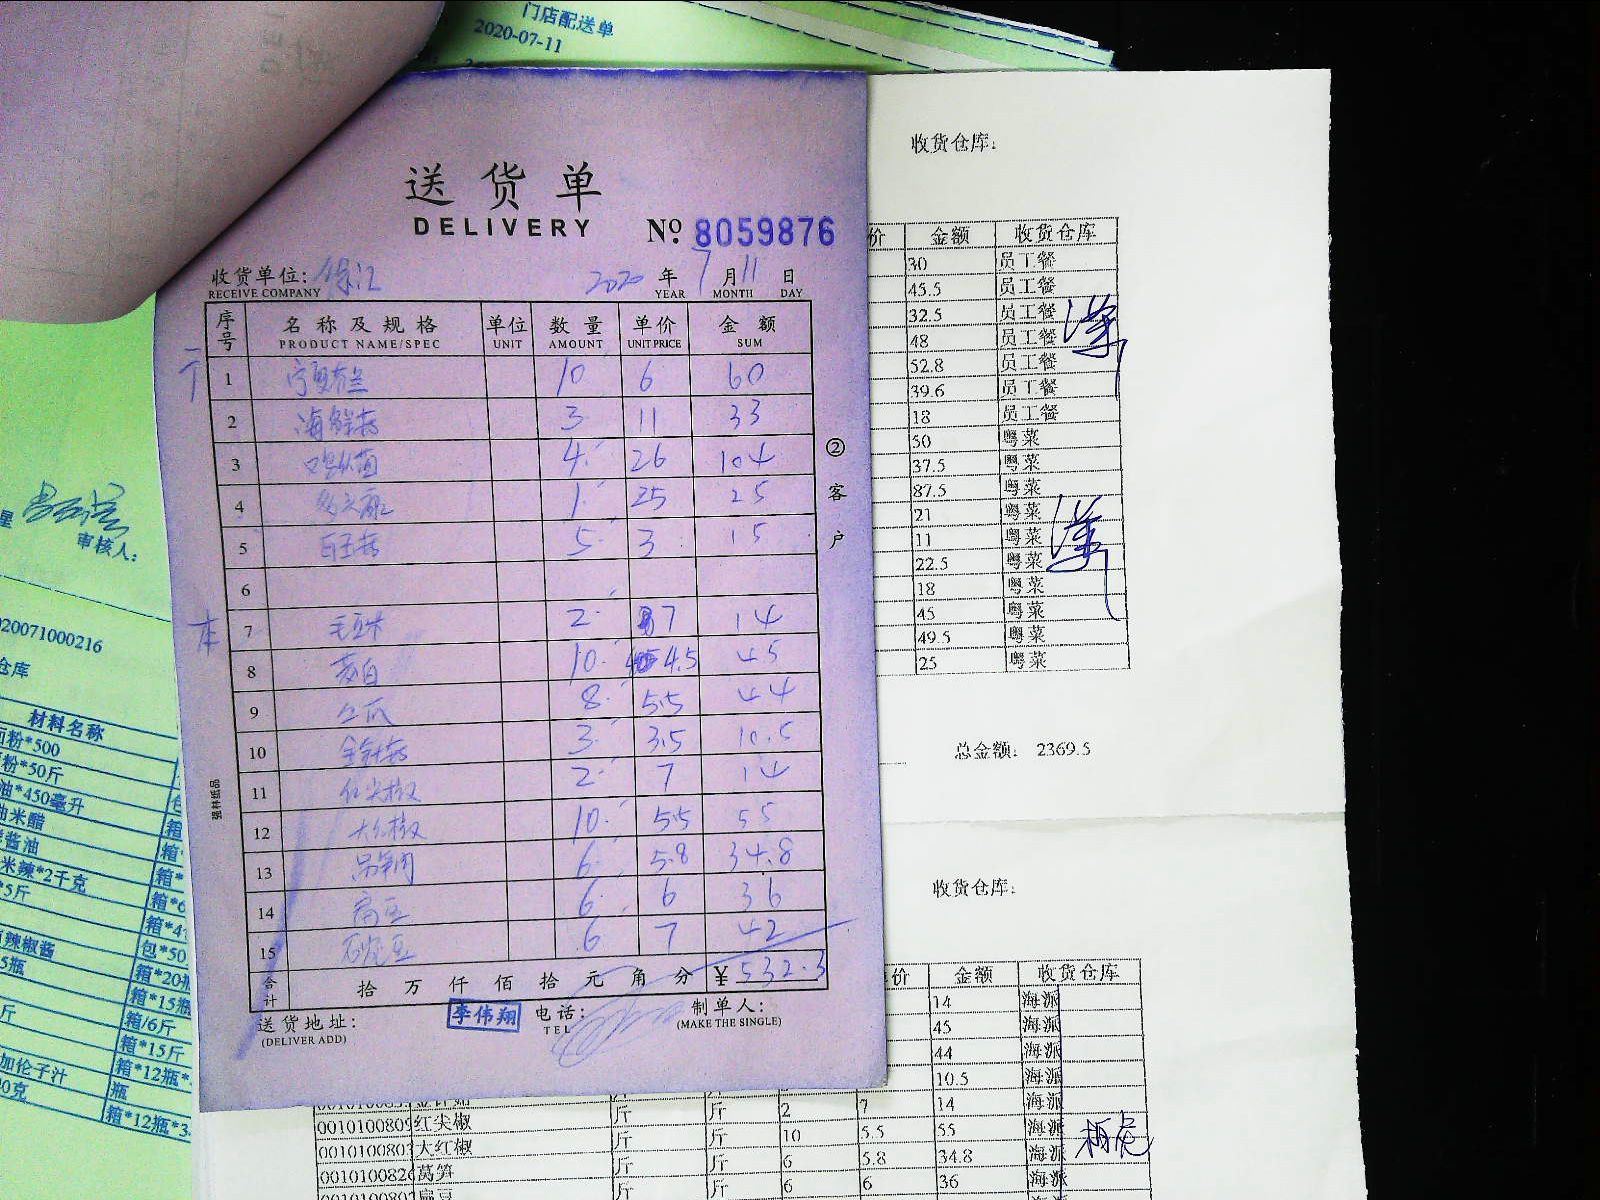 门店配送单
2020-07-11
送货单
DELIVERY № 8059876
收货单位: 2020 年 7 月 11 日
RECEIVE COMPANY YEAR MONTH DAY
序号 名称及规格 单位 数量 单价 金额
PRODUCT NAME/SPEC UNIT AMOUNT UNIT PRICE SUM
1 10 6 60
2 海鲜菇 3 11 33
3 4 26 104
4 1 25 25
5 白玉菇 5 3 15
6
7 毛豆米 2 7 14
8 茭白 10 4.5 45
9 8 5.5 44
10 金针菇 3 3.5 10.5
11 红尖椒 2 7 14
12 大红椒 10 5.5 55
13 6 5.8 34.8
14 扁豆 6 6 36
15 6 7 42
合计 拾 万 仟 佰 拾 元 角 分 ¥ 532.3
送货地址: 李伟翔 电话: 制单人:
(DELIVER ADD) TEL (MAKE THE SINGLE)
② 客户
收货仓库:
价 金额 收货仓库
30 员工餐
45.5 员工餐
32.5 员工餐
48 员工餐
52.8 员工餐
39.6 员工餐
18 员工餐
50 粤菜
37.5 粤菜
87.5 粤菜
21 粤菜
11 粤菜
22.5 粤菜
18 粤菜
45 粤菜
49.5 粤菜
25 粤菜
总金额: 2369.5
收货仓库:
价 金额 收货仓库
14 海派
45 海派
44 海派
10.5 海派
红尖椒 斤 斤 2 7 14 海派
大红椒 斤 斤 10 5.5 55 海派
莴笋 斤 斤 6 5.8 34.8 海派
扁豆 斤 斤 6 6 36 海派
审核人:
20071000216
仓库
材料名称
粉*500
粉*50斤
油*450毫升
米醋 箱
酱油 箱
米辣*2千克 箱*
*5斤
辣椒酱 包*50
5瓶 箱*20
箱*15瓶
斤 箱/6斤
箱*15斤
加伦子汁 箱*12瓶*
0克 瓶
箱*12瓶*3